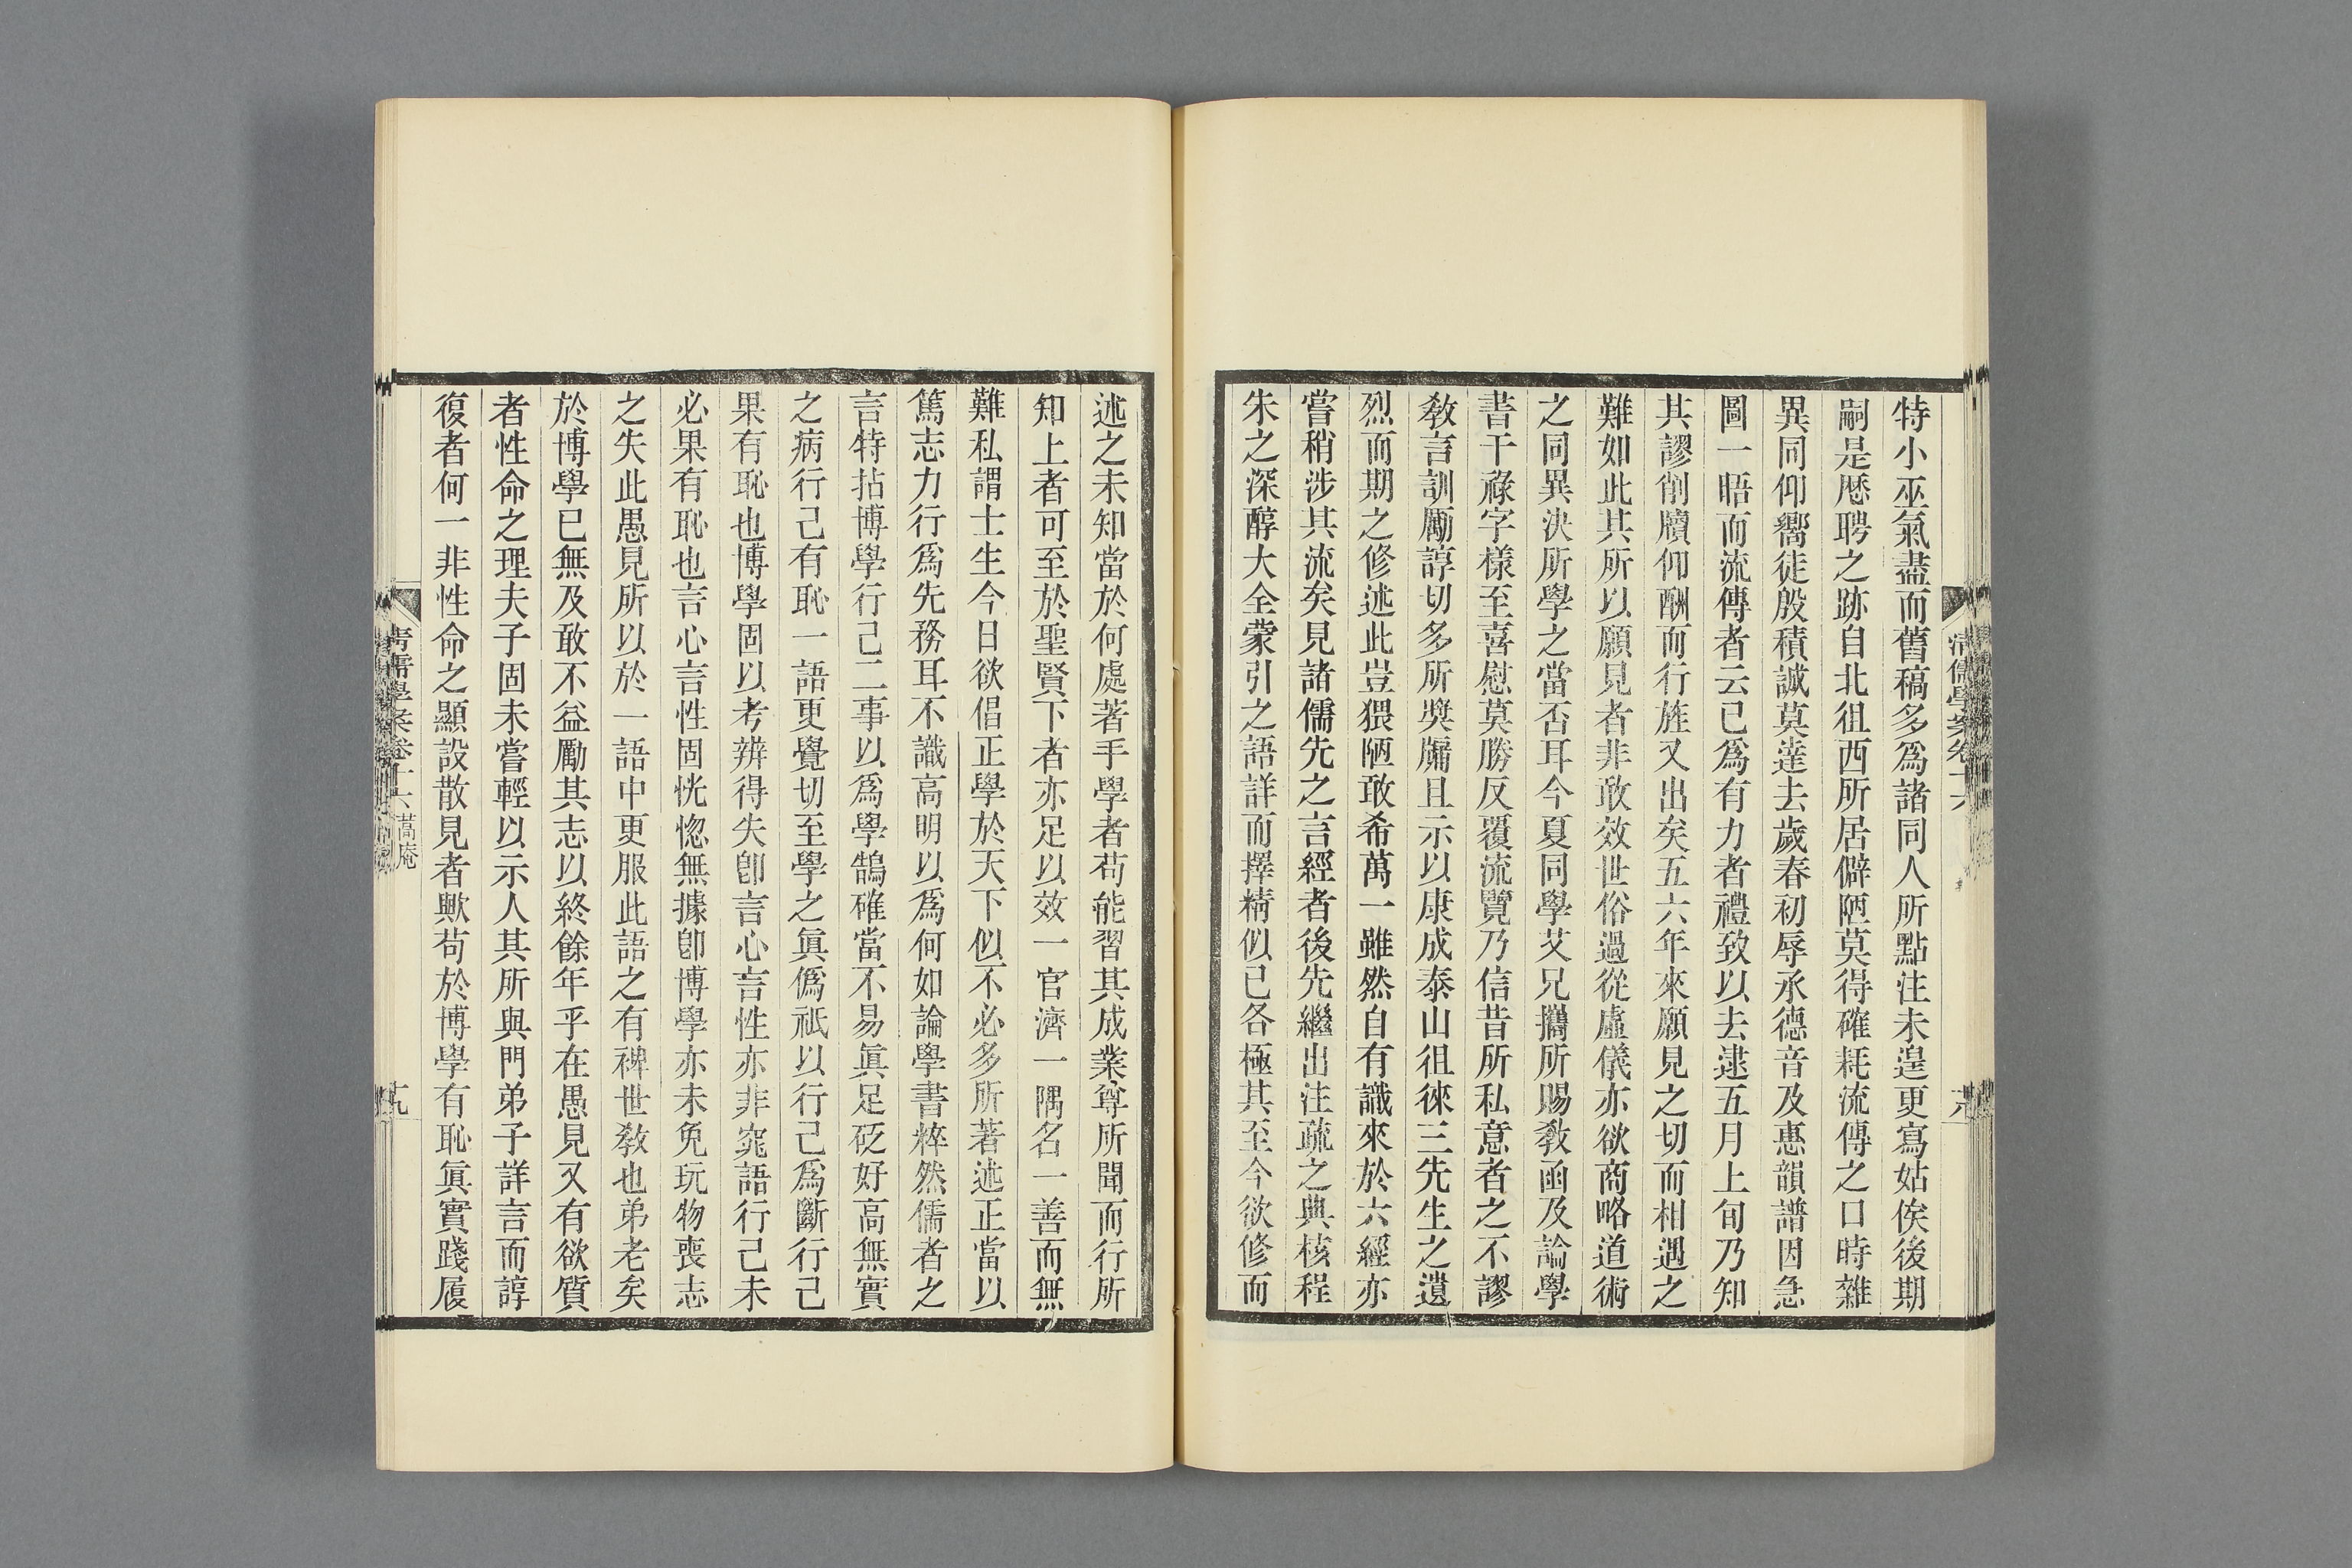 特小巫氣盡而舊稿多爲諸同人所點注未遑更寫姑俟後期
嗣是歷聘之跡自北徂西所居僻陋莫得確耗流傳之口時雜
異同仰嚮徒殷積誠莫達去歲春初辱承德音及惠韻譜因急
圖一晤而流傳者云已爲有力者禮致以去逮五月上旬乃知
其謬削牘仰酬而行旌又出矣五六年來願見之切而相遇之
難如此其所以願見者非敢效世俗過從虛儀亦欲商略道術
之同異決所學之當否耳今夏同學艾兄攜所賜敎函及論學
書干祿字樣至喜慰莫勝反覆流覽乃信昔所私意者之不謬
敎言訓勵諄切多所獎牖且示以康成泰山徂徠三先生之遺
烈而期之修述此豈猥陋敢希萬一雖然自有識來於六經亦
嘗稍涉其流矣見諸儒先之言經者後先繼出注疏之典核程
朱之深醇大全蒙引之語詳而擇精似已各極其至今欲修而
清儒學案卷十六
十八
述之未知當於何處著手學者苟能習其成業尊所聞而行所
知上者可至於聖賢下者亦足以效一官濟一隅名一善而無
難私謂士生今日欲倡正學於天下似不必多所著述正當以
篤志力行爲先務耳不識高明以爲何如論學書粹然儒者之
言特拈博學行己二事以爲學鵠確當不易眞足砭好高無實
之病行己有恥一語更覺切至學之眞僞祇以行己爲斷行己
果有恥也博學固以考辨得失卽言心言性亦非窕語行己未
必果有恥也言心言性固恍惚無據卽博學亦未免玩物喪志
之失此愚見所以於一語中更服此語之有裨世敎也弟老矣
於博學已無及敢不益勵其志以終餘年乎在愚見又有欲質
者性命之理夫子固未嘗輕以示人其所與門弟子詳言而諄
復者何一非性命之顯設散見者歟苟於博學有恥眞實踐履
清儒學案卷十六 蒿庵
十九